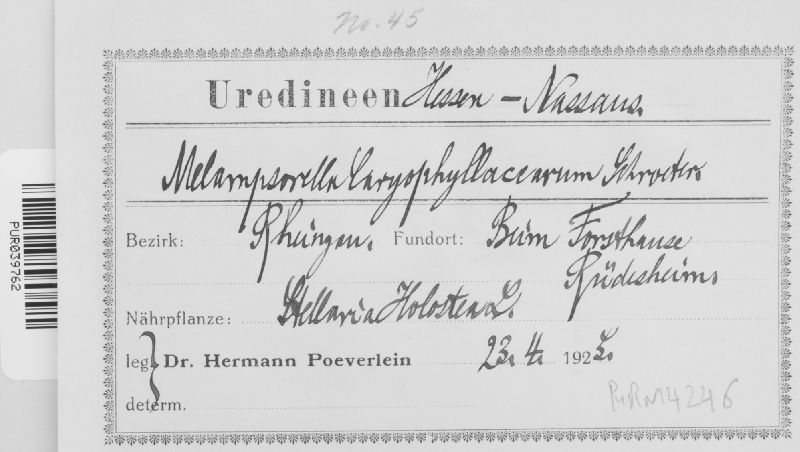 No. 45
Uredineen Hessen – Nassaus.
Melampsorella Caryophyllacearum Schroeter.
Bezirk: Rheingau. Fundort: Beim Forsthause
Rüdesheim.
Nährpflanze: Stellaria Holostea L.
leg. Dr. Hermann Poeverlein 23. 4. 192
determ.
PUR N4246
PUR039762